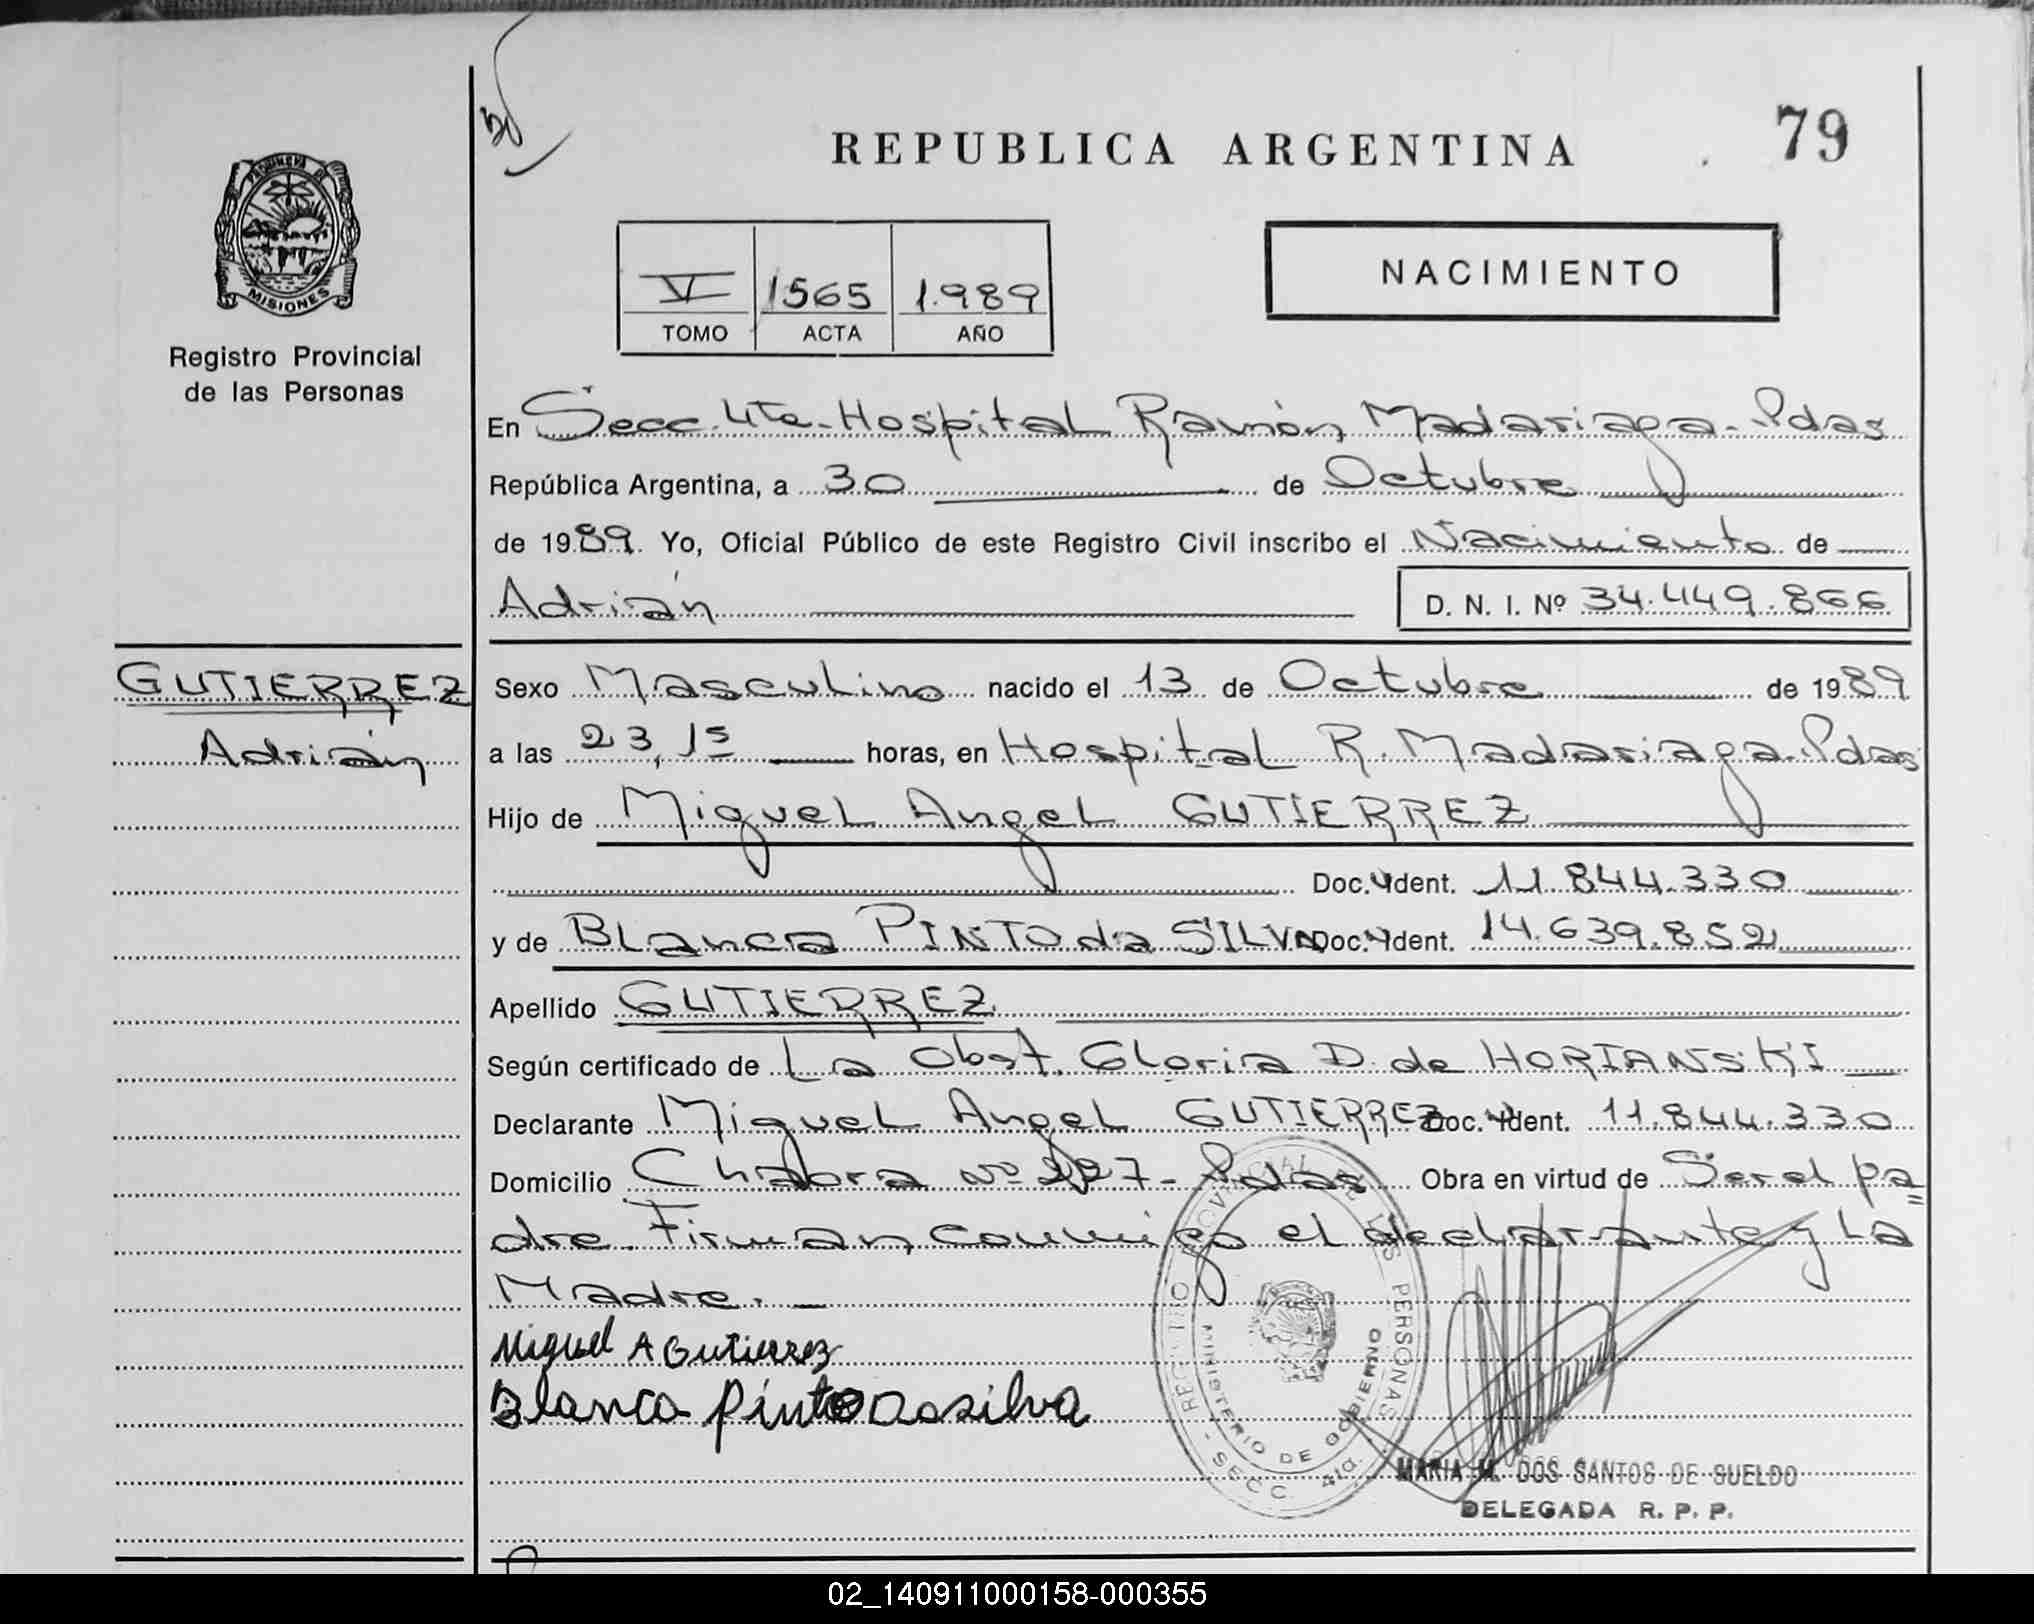 REPUBLICA ARGENTINA
79
PROVINCIA DE
MISIONES
Registro Provincial
de las Personas
V 1565 1.989
TOMO ACTA AÑO
NACIMIENTO
En Secc. 4ta. Hospital Ramón Madariaga - Pdas
República Argentina, a 30 de Octubre
de 1989. Yo, Oficial Público de este Registro Civil inscribo el Nacimiento de
Adrián D. N. I. Nº 34.449.866
GUTIERREZ
Adrián
Sexo Masculino nacido el 13 de Octubre de 1989
a las 23,15 horas, en Hospital R. Madariaga - Pdas
Hijo de Miguel Angel GUTIERREZ
Doc. Ident. 11.844.330
y de Blanca PINTO da SILVA Doc. Ident. 14.639.852
Apellido GUTIERREZ
Según certificado de La Obst. Gloria D. de HORIANSKI
Declarante Miguel Angel GUTIERREZ Doc. Ident. 11.844.330
Domicilio Chacra Nº 227 - Pdas Obra en virtud de Ser el pa=
dre. Firman conmigo el declarante y La
Madre. _
Miguel A Gutierrez
Blanca Pinto Dasilva
REGISTRO PROVINCIAL DE LAS PERSONAS
MINISTERIO DE GOBIERNO
- SECC. 4ta.
MARIA M. DOS SANTOS DE SUELDO
DELEGADA R. P. P.
02_140911000158-000355